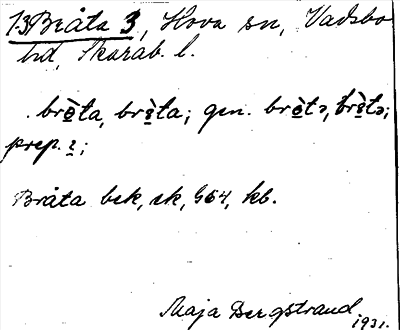 13 Bråta 3, Hova sn, Vadsbo
hd, Skarab. l.
brèta, brèta; gen. brètə, brètə;
prep. i;
Bråta bek, sk, G54, kb.
Maja Bergstrand
1931.